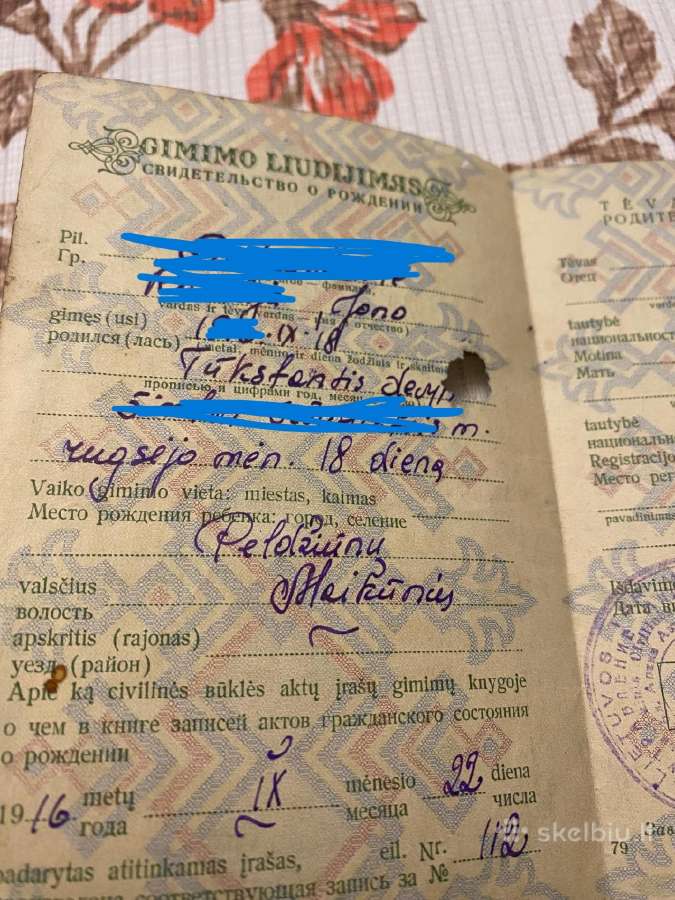 GIMIMO LIUDIJIMAS
СВИДЕТЕЛЬСТВО О РОЖДЕНИИ
Pil.
Гр.
фамилия
vardas ir tėvo vardas (имя отчество)
Jono
gimęs (usi)
IX 18
родился (лась)
(metai, mėnuo ir diena žodžiais ir skaitm.
Tūkstantis devyn
прописью и цифрами год, месяц
m.
rugsėjo mėn. 18 dieną
Vaiko gimimo vieta: miestas, kaimas
Место рождения ребенка: город, селение
Peldžiūnų
valsčius
волость
apskritis (rajonas)
уезд (район)
Apie ką civilinės būklės aktų įrašų gimimų knygoje
о чем в книге записей актов гражданского состояния
о рождении
19 16 metų IX mėnesio 22 diena
года месяца числа
padarytas atitinkamas įrašas, eil. Nr. 112
соответствующая запись за №
TĖVA
РОДИТЕ
Tėvas
Отец
vardas
tautybė
национальност
Motina
Мать
tautybė
национально
Registracijo
Место рег
pavadinimas
Išdavimo
Дата вы
LIETUVOS
79
skelbiu.lt